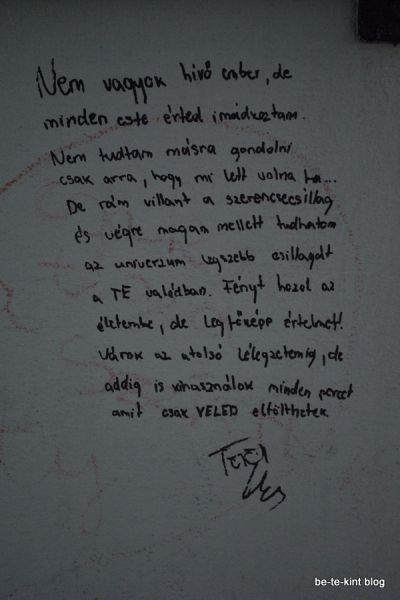 Nem vagyok hivő ember, de
minden este érted imádkoztam.
Nem tudtam másra gondolni
csak arra, hogy mi lett volna ha...
De rám villant a szerencsecsillag
és végre magam mellett tudhatom
az univerzum legszebb csillagát
a TE valódban. Fényt hozol az
életembe, de legfőképp értelmet!
Várok az utolsó lélegzetemig, de
addig is kihasználok minden percet
amit csak VELED eltölthetek.
be-te-kint blog